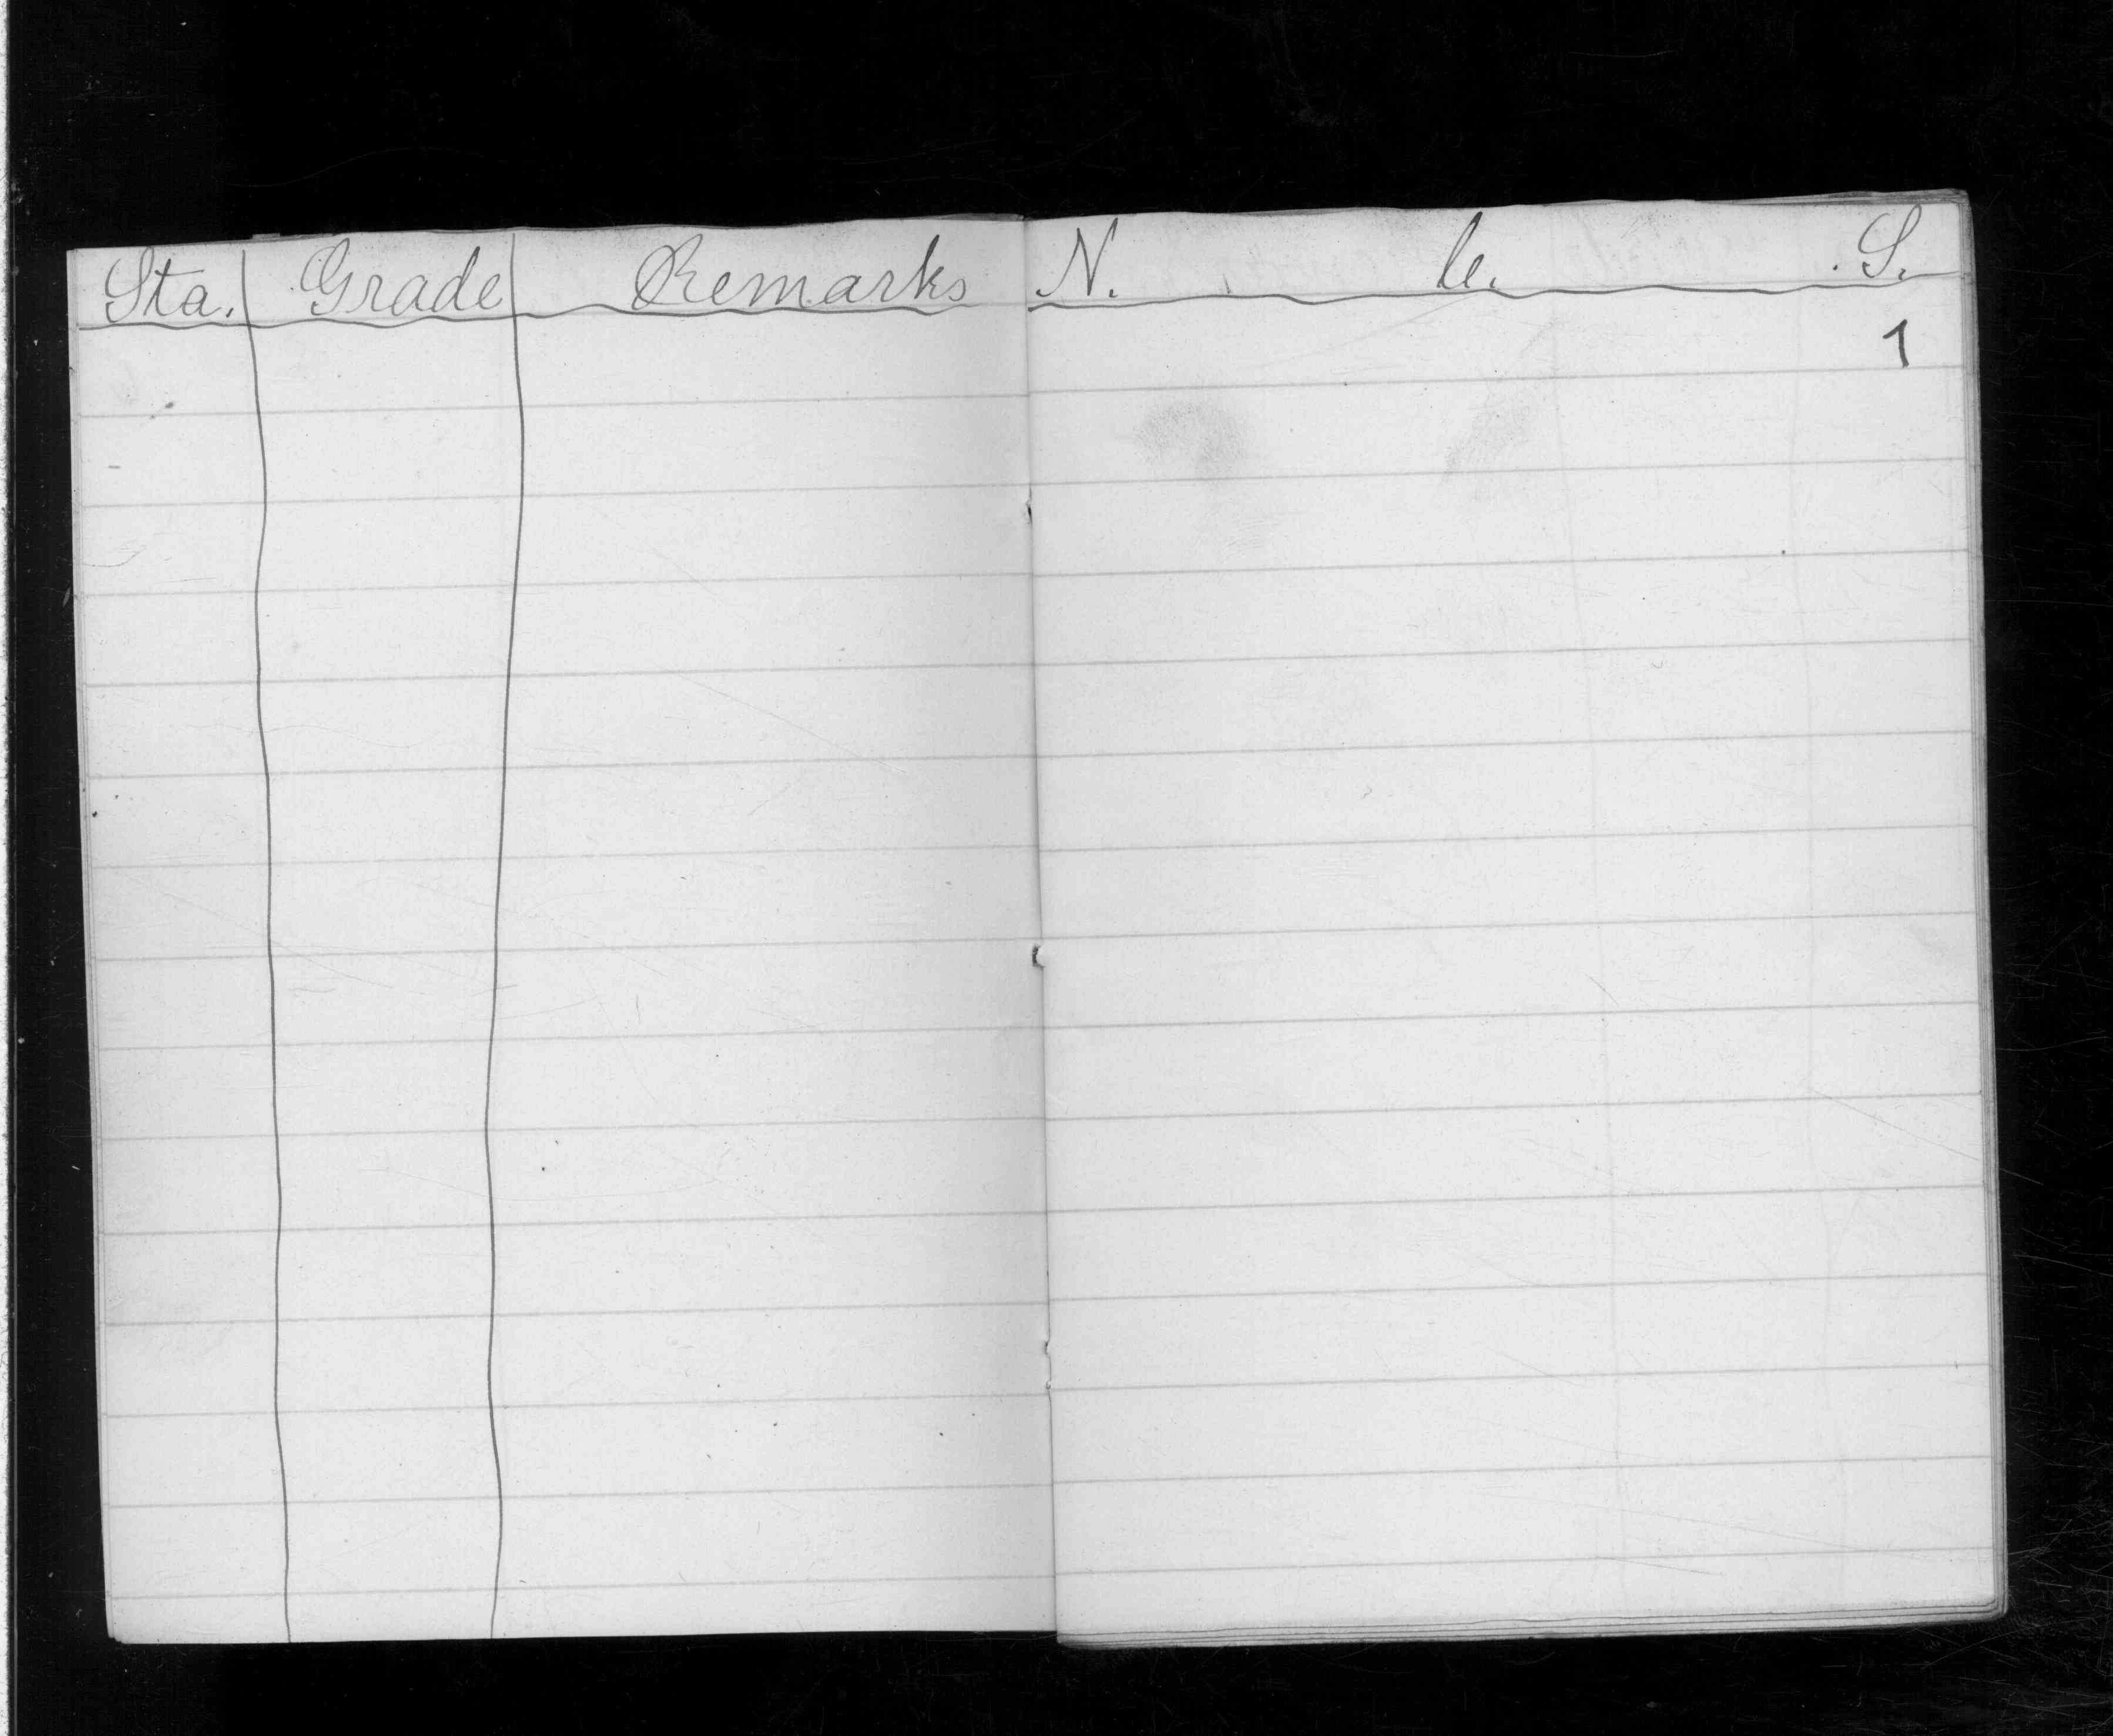 Sta. Grade Remarks N. C. S.
1